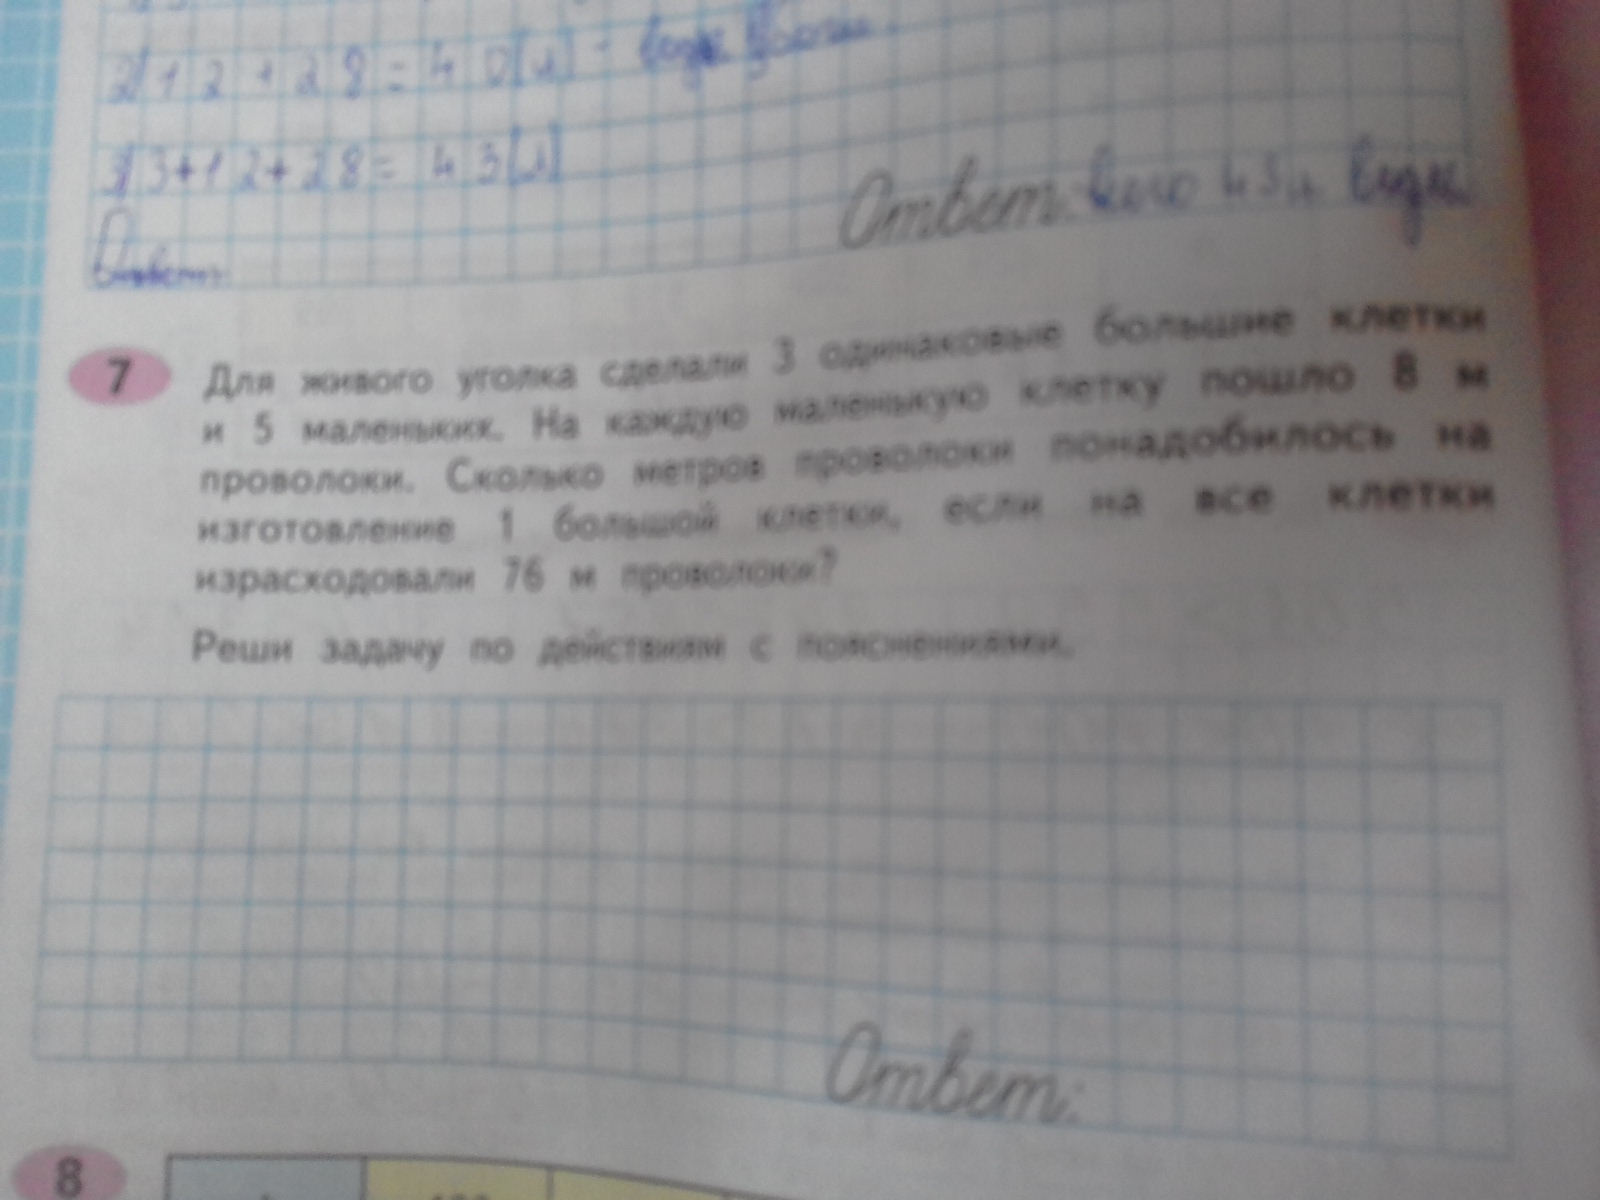 2) 12 + 28 = 40 (л) -
3) 3+12+28= 43 (л)
Ответ: всего 43 л воды
Ответ:
7 Для живого уголка сделали 3 одинаковые большие клетки
и 5 маленьких. На каждую маленькую клетку пошло 8 м
проволоки. Сколько метров проволоки понадобилось на
изготовление 1 большой клетки, если на все клетки
израсходовали 76 м проволоки?
Реши задачу по действиям с пояснениями.
Ответ:
8